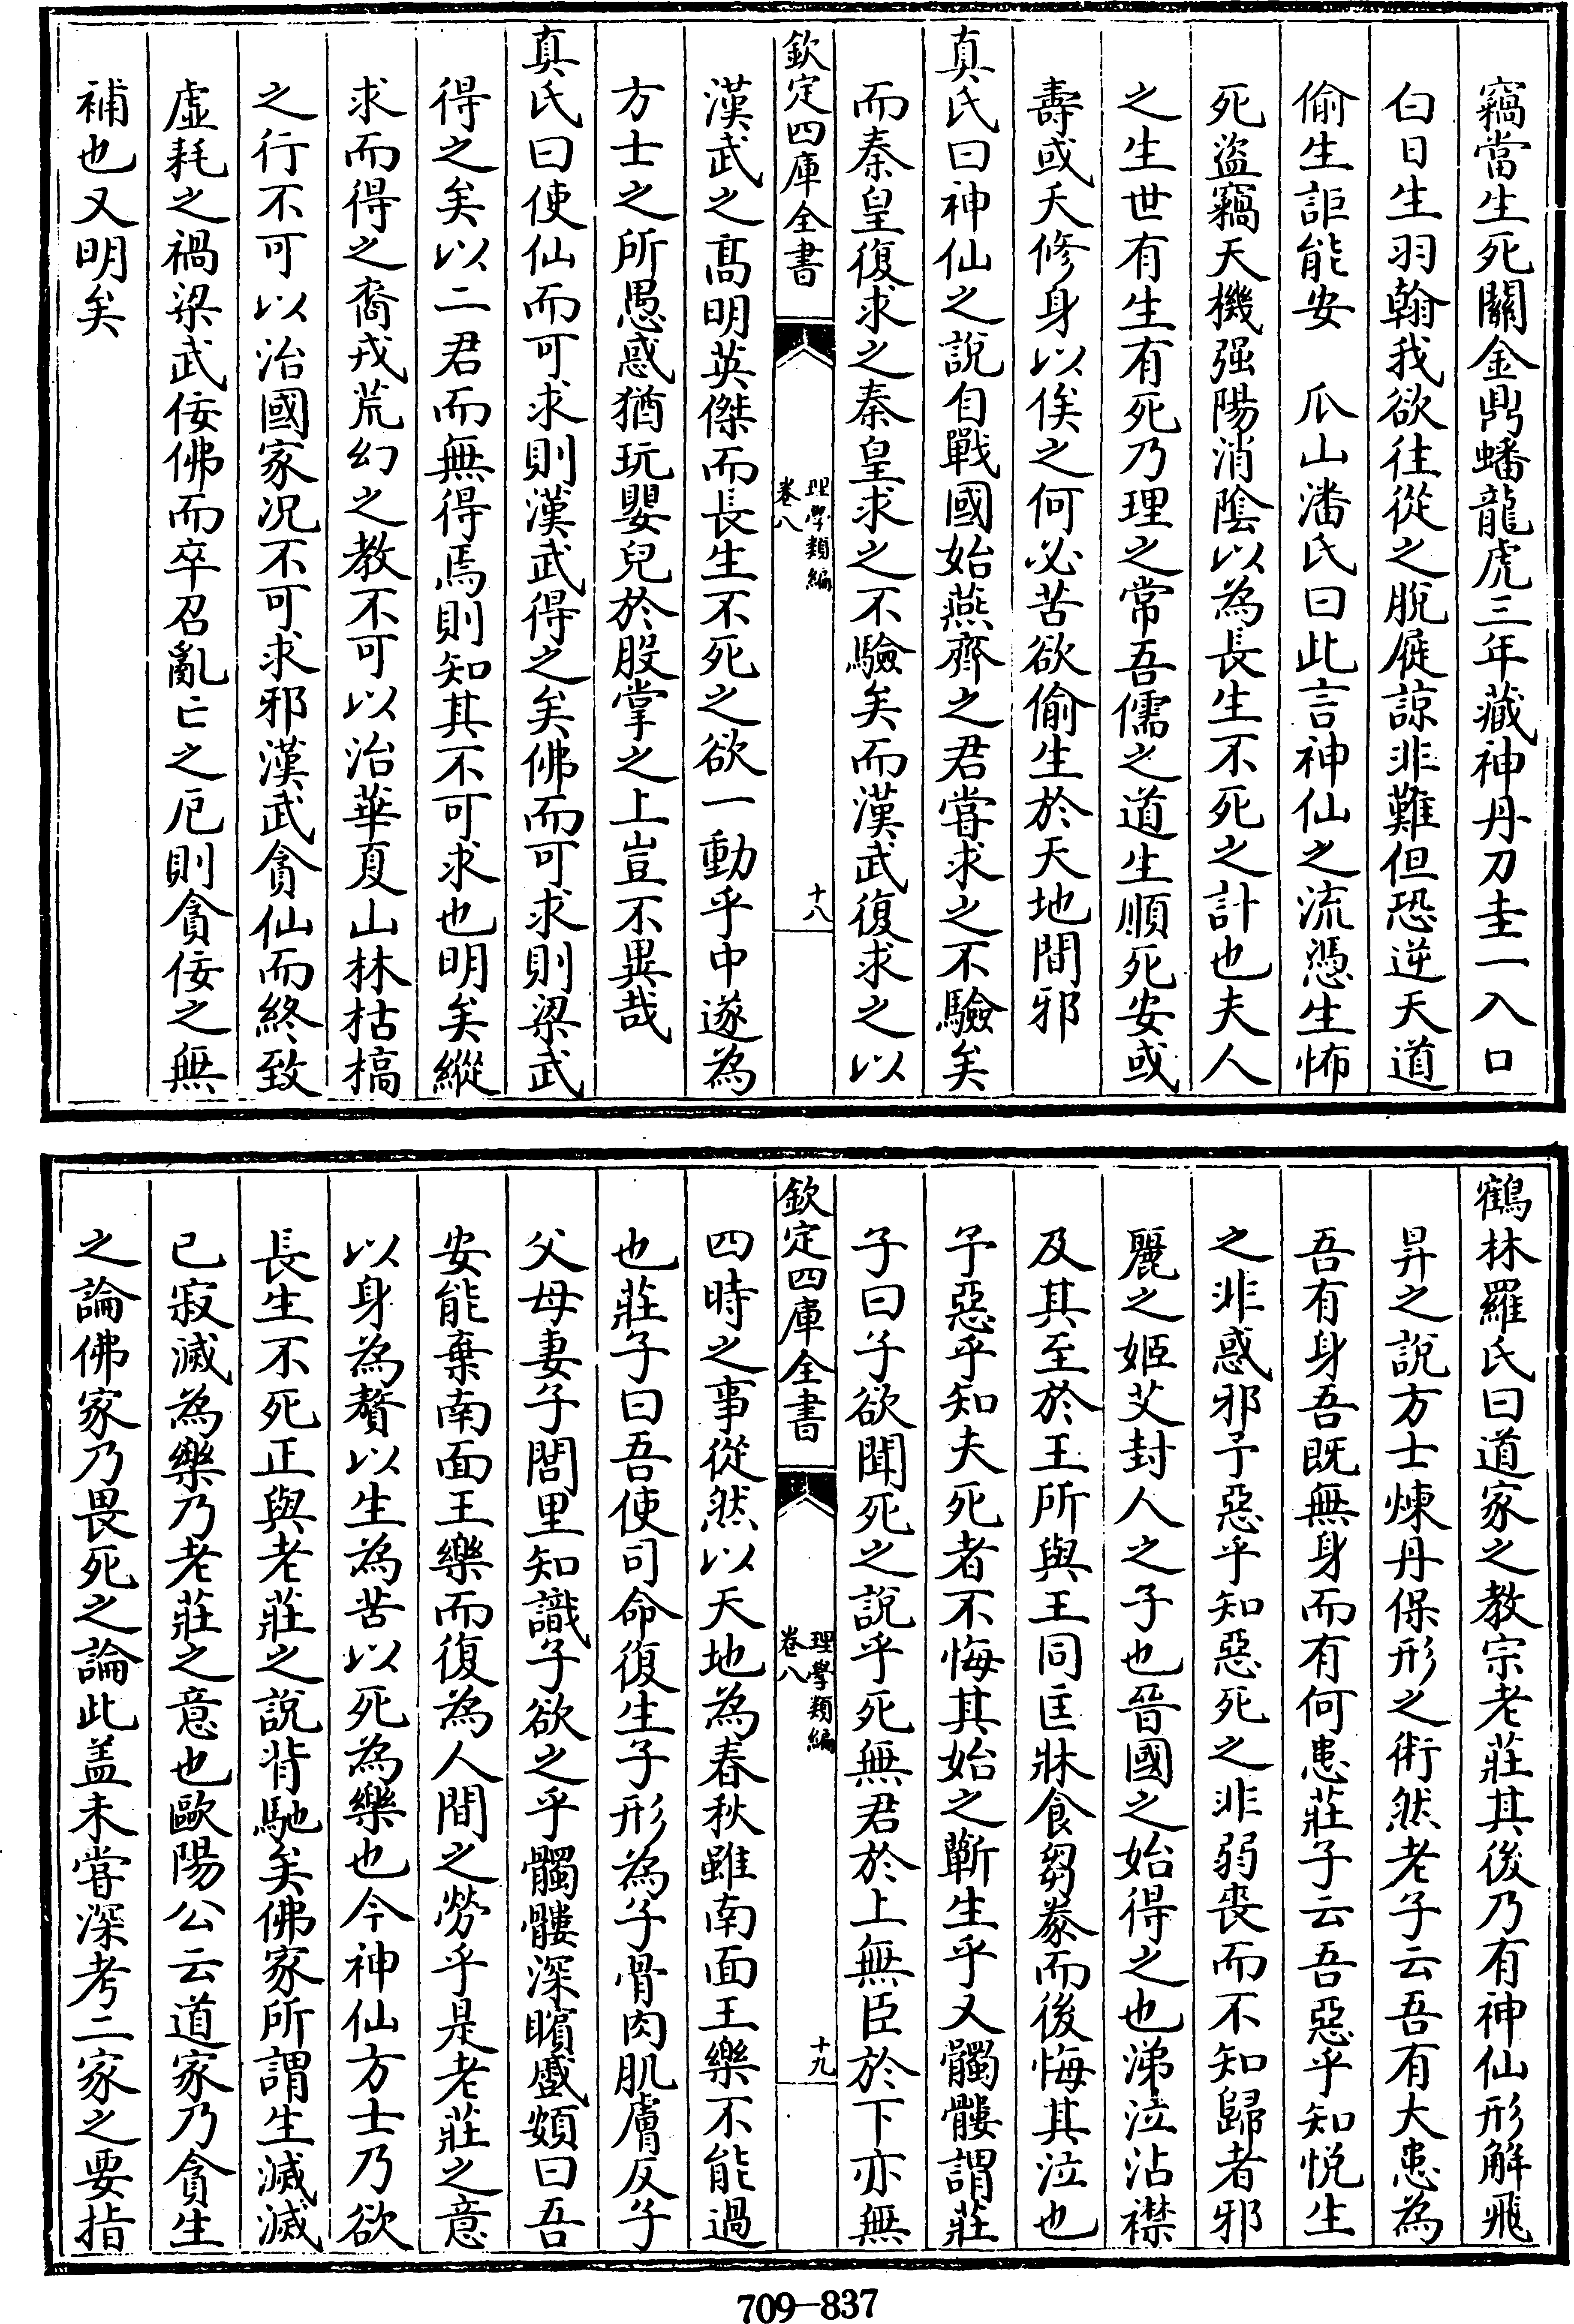 竊當生死關金鼎蟠龍虎三年藏神丹刀圭一入口
白日生羽翰我欲往從之脫屣諒非難但恐逆天道
偷生詎能安　瓜山潘氏曰此言神仙之流憑生怖
死盜竊天機强陽消陰以為長生不死之計也夫人
之生世有生有死乃理之常吾儒之道生順死安或
壽或夭修身以俟之何必苦欲偷生於天地間邪
真氏曰神仙之說自戰國始燕齊之君嘗求之不驗矣
而秦皇復求之秦皇求之不驗矣而漢武復求之以
欽定四庫全書
理學類編
卷八
十八
漢武之髙明英傑而長生不死之欲一動乎中遂為
方士之所愚惑猶玩嬰兒於股掌之上豈不異哉
真氏曰使仙而可求則漢武得之矣佛而可求則梁武
得之矣以二君而無得焉則知其不可求也明矣縱
求而得之裔戎荒幻之教不可以治華夏山林枯槁
之行不可以治國家況不可求邪漢武貪仙而終致
虛耗之禍梁武佞佛而卒召亂亡之厄則貪佞之無
補也又明矣
鶴林羅氏曰道家之教宗老莊其後乃有神仙形解飛
昇之說方士煉丹保形之術然老子云吾有大患為
吾有身吾既無身而有何患莊子云吾惡乎知悅生
之非惑邪予惡乎知惡死之非弱喪而不知歸者邪
麗之姬艾封人之子也晉國之始得之也涕泣沾襟
及其至於王所與王同匡牀食芻豢而後悔其泣也
予惡乎知夫死者不悔其始之蘄生乎又髑髏謂莊
子曰子欲聞死之說乎死無君於上無臣於下亦無
欽定四庫全書
理學類編
卷八
十九
四時之事從然以天地為春秋雖南面王樂不能過
也莊子曰吾使司命復生子形為子骨肉肌膚反子
父母妻子閭里知識子欲之乎髑髏深矉蹙頞曰吾
安能棄南面王樂而復為人間之勞乎是老莊之意
以身為贅以生為苦以死為樂也今神仙方士乃欲
長生不死正與老莊之說背馳矣佛家所謂生滅滅
已寂滅為樂乃老莊之意也歐陽公云道家乃貪生
之論佛家乃畏死之論此盖未嘗深考二家之要指
709-837